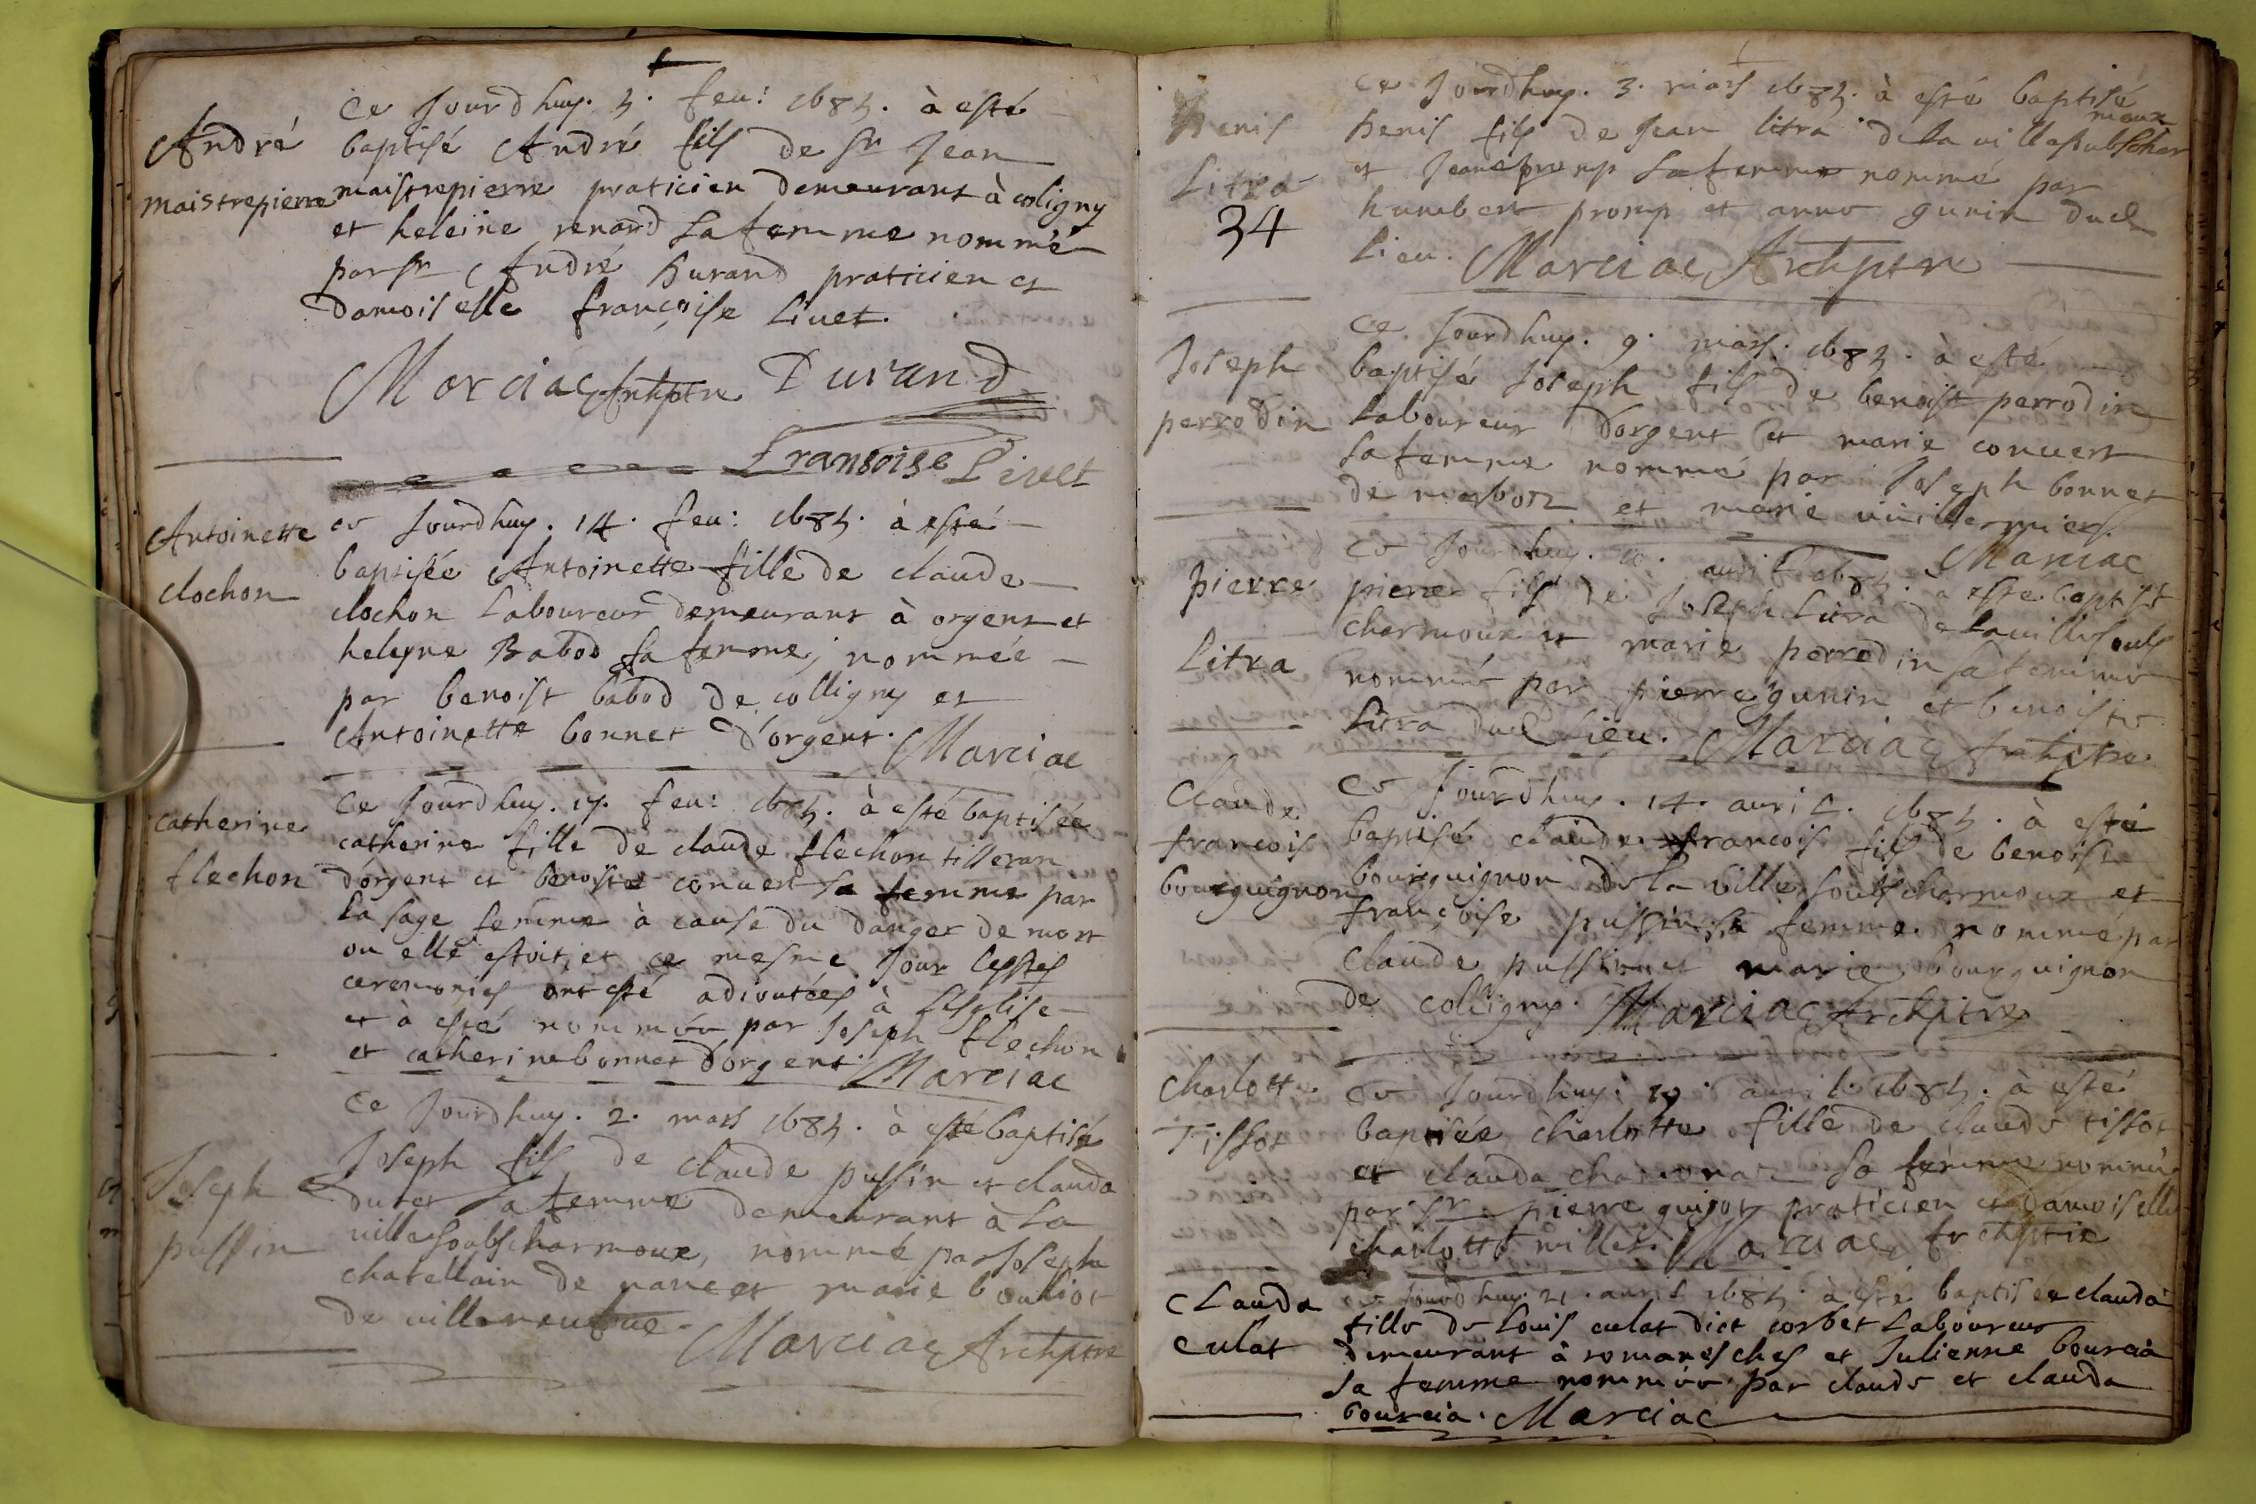 André
maistrepierre
Ce Jourdhuy. 5. feu: 1685. à esté
baptisé André fils de Sr Jean
maistrepierre praticien demeurant à coligny
et heleine renard sa femme nommé
par Sr André Durand praticien et
damoiselle françoise Liuet.
Marciac Archptre Durand
Fransoise Livet
Antoinette
clochon
ce Jourdhuy. 14. feu: 1685. à esté
baptisée Antoinette fille de claude
clochon Laboureur demeurant à orgent et
heleyne Babod sa femme, nommée
par benoist babod de colligny et
Antoinette bonnet d'orgent. Marciac
catherine
flechon
Ce Jourdhuy. 17. feu: 1685. à esté baptisée
catherine fille de claude flechon tilleran
dorgent et benoiste conuert sa femme par
la sage femme à cause du danger de mort
ou elle estoit, et ce mesme Jour les
ceremonies ont esté adioutées à Lesglise
et à esté nommée par Joseph flechon
et catherine bonnet dorgent. Marciac
Joseph
pussin
Ce Jourdhuy. 2. mars 1685. à esté baptisé
Joseph fils de claude pussin et clauda
dutet sa femme demeurant à la
uillesoubscharmoux, nommé par Joseph
chatellain de nanc et marie bouliot
de uilleneufue.
Marciac Archptre
Denis
Litra
34
Ce Jourdhuy. 3. mars 1685. à esté baptisé
Denis fils de Jean litra de la uillesubschar
moux
et Jeane promp sa femme nommé par
humbert promp et anne gunin dud
lieu. Marciac Archptre
Joseph
perrodin
Ce Jourdhuy. 9. mars. 1685. à esté
baptisé Joseph fils de benoist perrodin
Laboureur dorgent et marie conuert
sa femme nommé par Joseph bonnet
de marboz et marie uuillermier.
Marciac
pierre
Litra
Ce Jourdhuy. 10. auril 1685. à esté baptisé
pierre fils de Joseph Litra de la uillesoubs
charmoux et marie perrodin sa femme
nommé par pierre gunin et benoiste
Litra dud lieu. Marciac Archptre
Claude
francois
bourguignon
Ce Jourdhuy. 14. auril. 1685. à esté
baptisé claude francois fils de benoist
bourguignon de la uille soubscharmoux et
françoise pussin sa femme. nommé par
claude pussin et marie bourguignon
de coligny. Marciac Archptre
Charlotte
Tissot
Ce Jourdhuy. 19. auril. 1685. à esté
baptisée charlotte fille de claude tissot
et clauda sa femme nommée
par Sr pierre guigot praticien et damoiselle
charlotte millet. Marciac Archptre
Clauda
Culat
Ce Jourdhuy 21. auril 1685. à esté baptisée clauda
fille de Louis culat dict corbet Laboureur
demeurant à romanesches et Julienne bourcia
sa femme nommée par claude et clauda
bourcia. Marciac